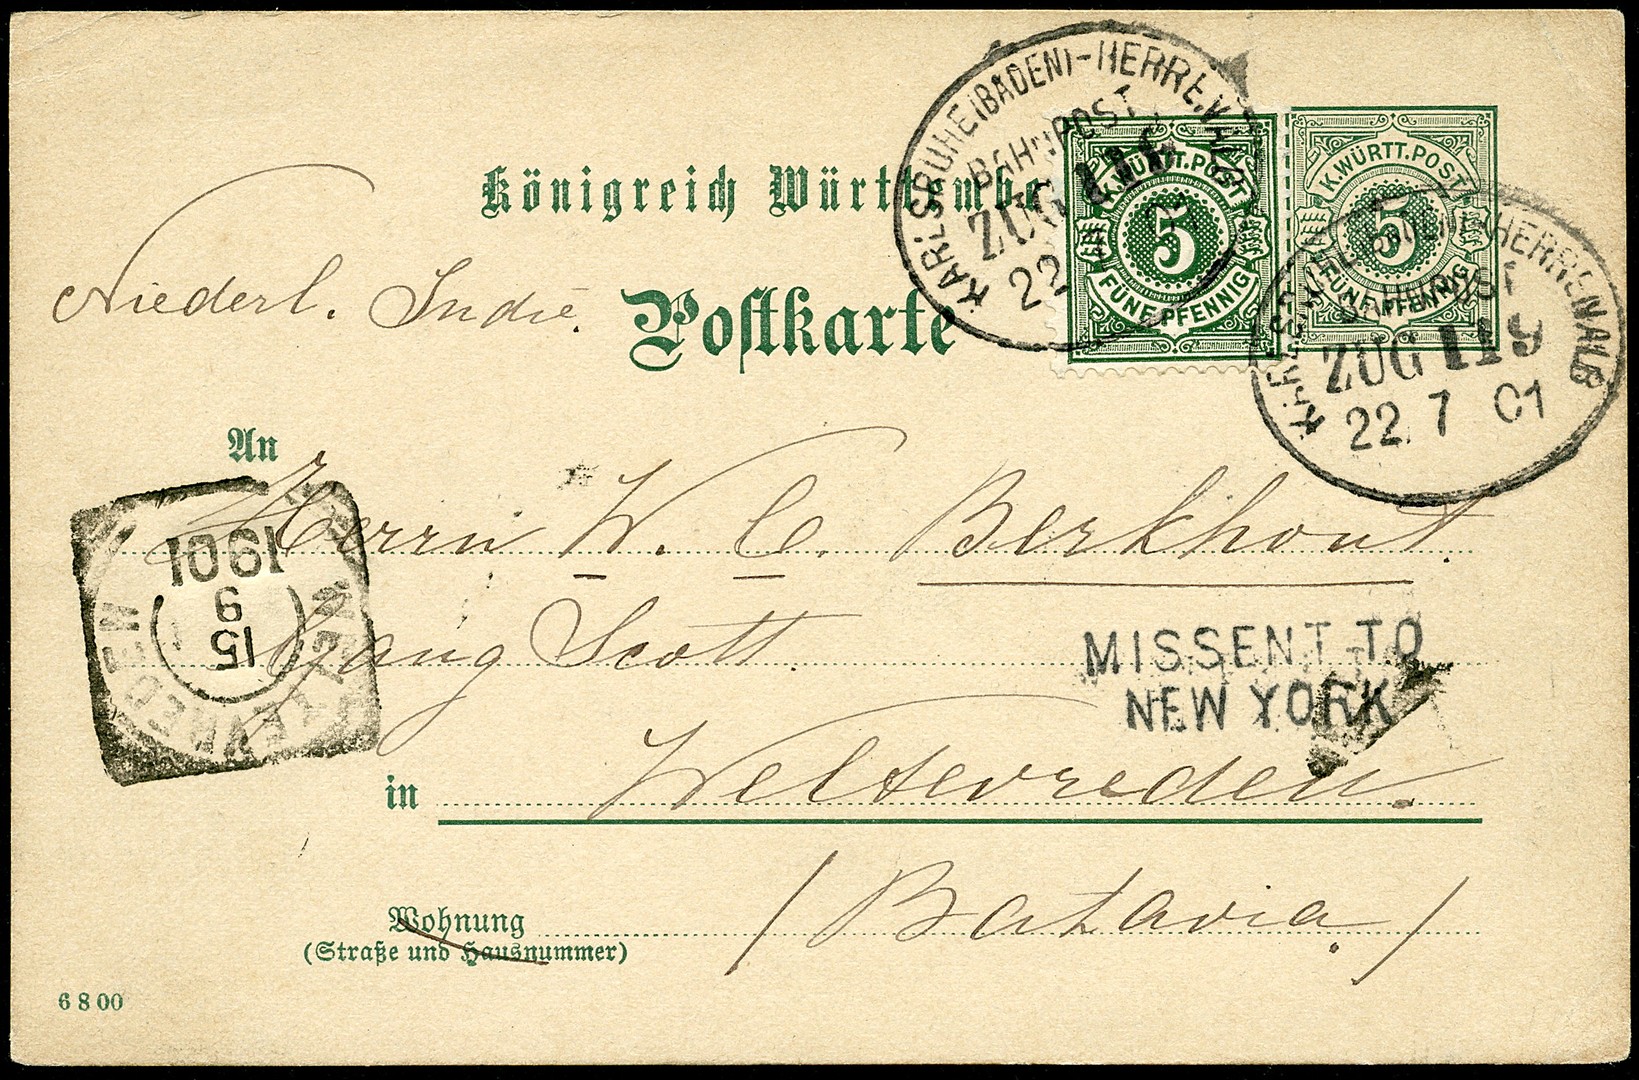 KARLSRUHE(BADEN)-HERRENALB
BAHNPOST
ZUG 119
22 7
Königreich Württembe
K.WÜRTT.POST
5
FÜNF PFENNIG
K.WÜRTT.POST
5
FÜNF PFENNIG
KARLSRUHE(BADEN)-HERRENALB
BAHNPOST
ZUG 119
22 7 01
Niederl. Indië.
Postkarte
An
Herrn W. C. Berkhout.
Gang Scott.
MISSENT TO
NEW YORK
WELTEVREDEN
15
9
1901
in Weltevreden.
(Batavia.)
Wohnung
(Straße und Hausnummer)
6 8 00